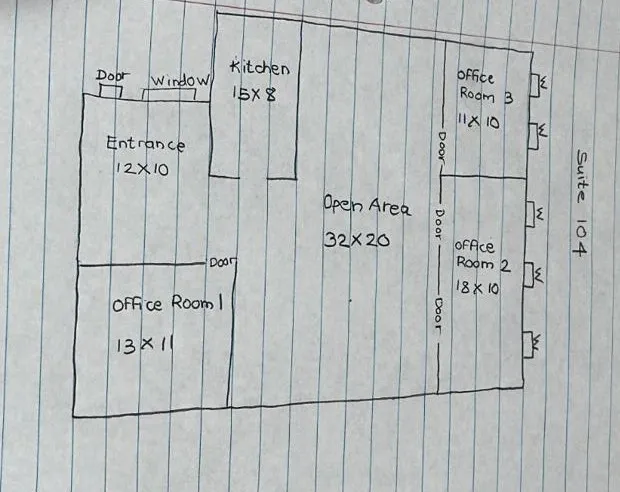 Door
Window
Kitchen
15X8
Entrance
12X10
office
Room 3
11X10
Door
Suite 104
Open Area
32X20
Door
office
Room 2
18X10
Door
Door
Office Room 1
13X11
W
W
W
W
W